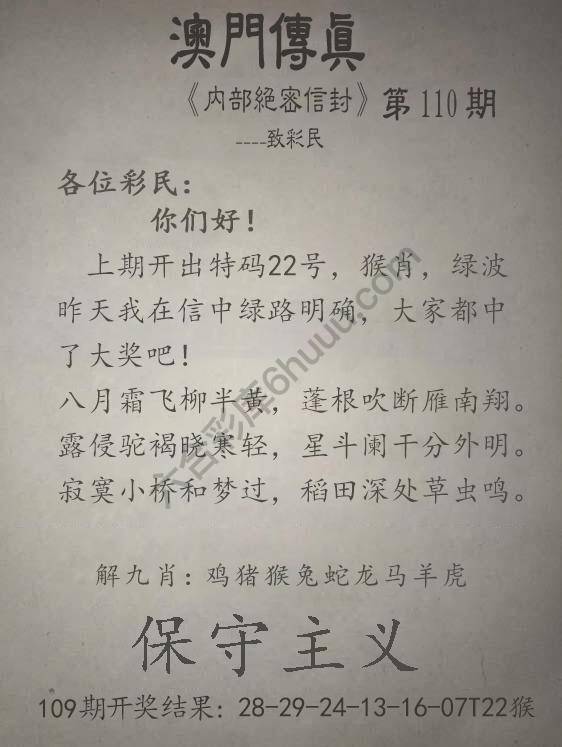 澳門傳眞
《内部絕密信封》第110期
----致彩民
各位彩民：
你们好！
上期开出特码22号，猴肖，绿波
昨天我在信中绿路明确，大家都中
了大奖吧！
八月霜飞柳半黄，蓬根吹断雁南翔。
露侵驼褐晓寒轻，星斗阑干分外明。
寂寞小桥和梦过，稻田深处草虫鸣。
六合彩库6huuu.com
解九肖：鸡猪猴兔蛇龙马羊虎
保守主义
109期开奖结果：28-29-24-13-16-07T22猴